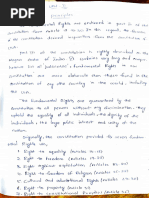 The Fundamental Rights are enshrined in part III of the
constitution from articles 12 to 35. In this regard, the framers
of the constitution derived
Part III of the constitution is rightly described as the
magna carta of India. It contains a very long and comprehensive
list of 'justiciable' Fundamental Rights.
constitution are more elaborate than those found in the
constitution of any other country in the world, including
the USA.
The Fundamental Rights are guaranteed by the
constitution to all persons without any discrimination. They
uphold the equality of all individuals, the dignity of the
individual, the larger public interest and unity of the
nation.
Originally, the constitution provided for seven Fundamental
Rights viz,
1. Right to equality (articles 14-18)
2. Right to freedom (articles 19-22)
3. Right against exploitation (articles 23-24)
4. Right to freedom of religion (articles 25-28)
5. Cultural and educational rights (articles 29-30)
6. Right to property (article 31)
7. Right to constitutional remedies (article 32)